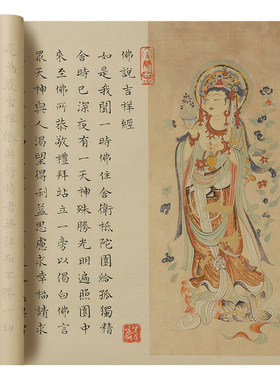 佛說吉祥經
如是我聞一時佛住舍衛祗陀園給孤獨精
舍時已深夜有一天神殊勝光明遍照園中
來至佛所恭敬禮拜站立一旁以偈白佛言
眾天神與人渴望得利益思慮求幸福請求